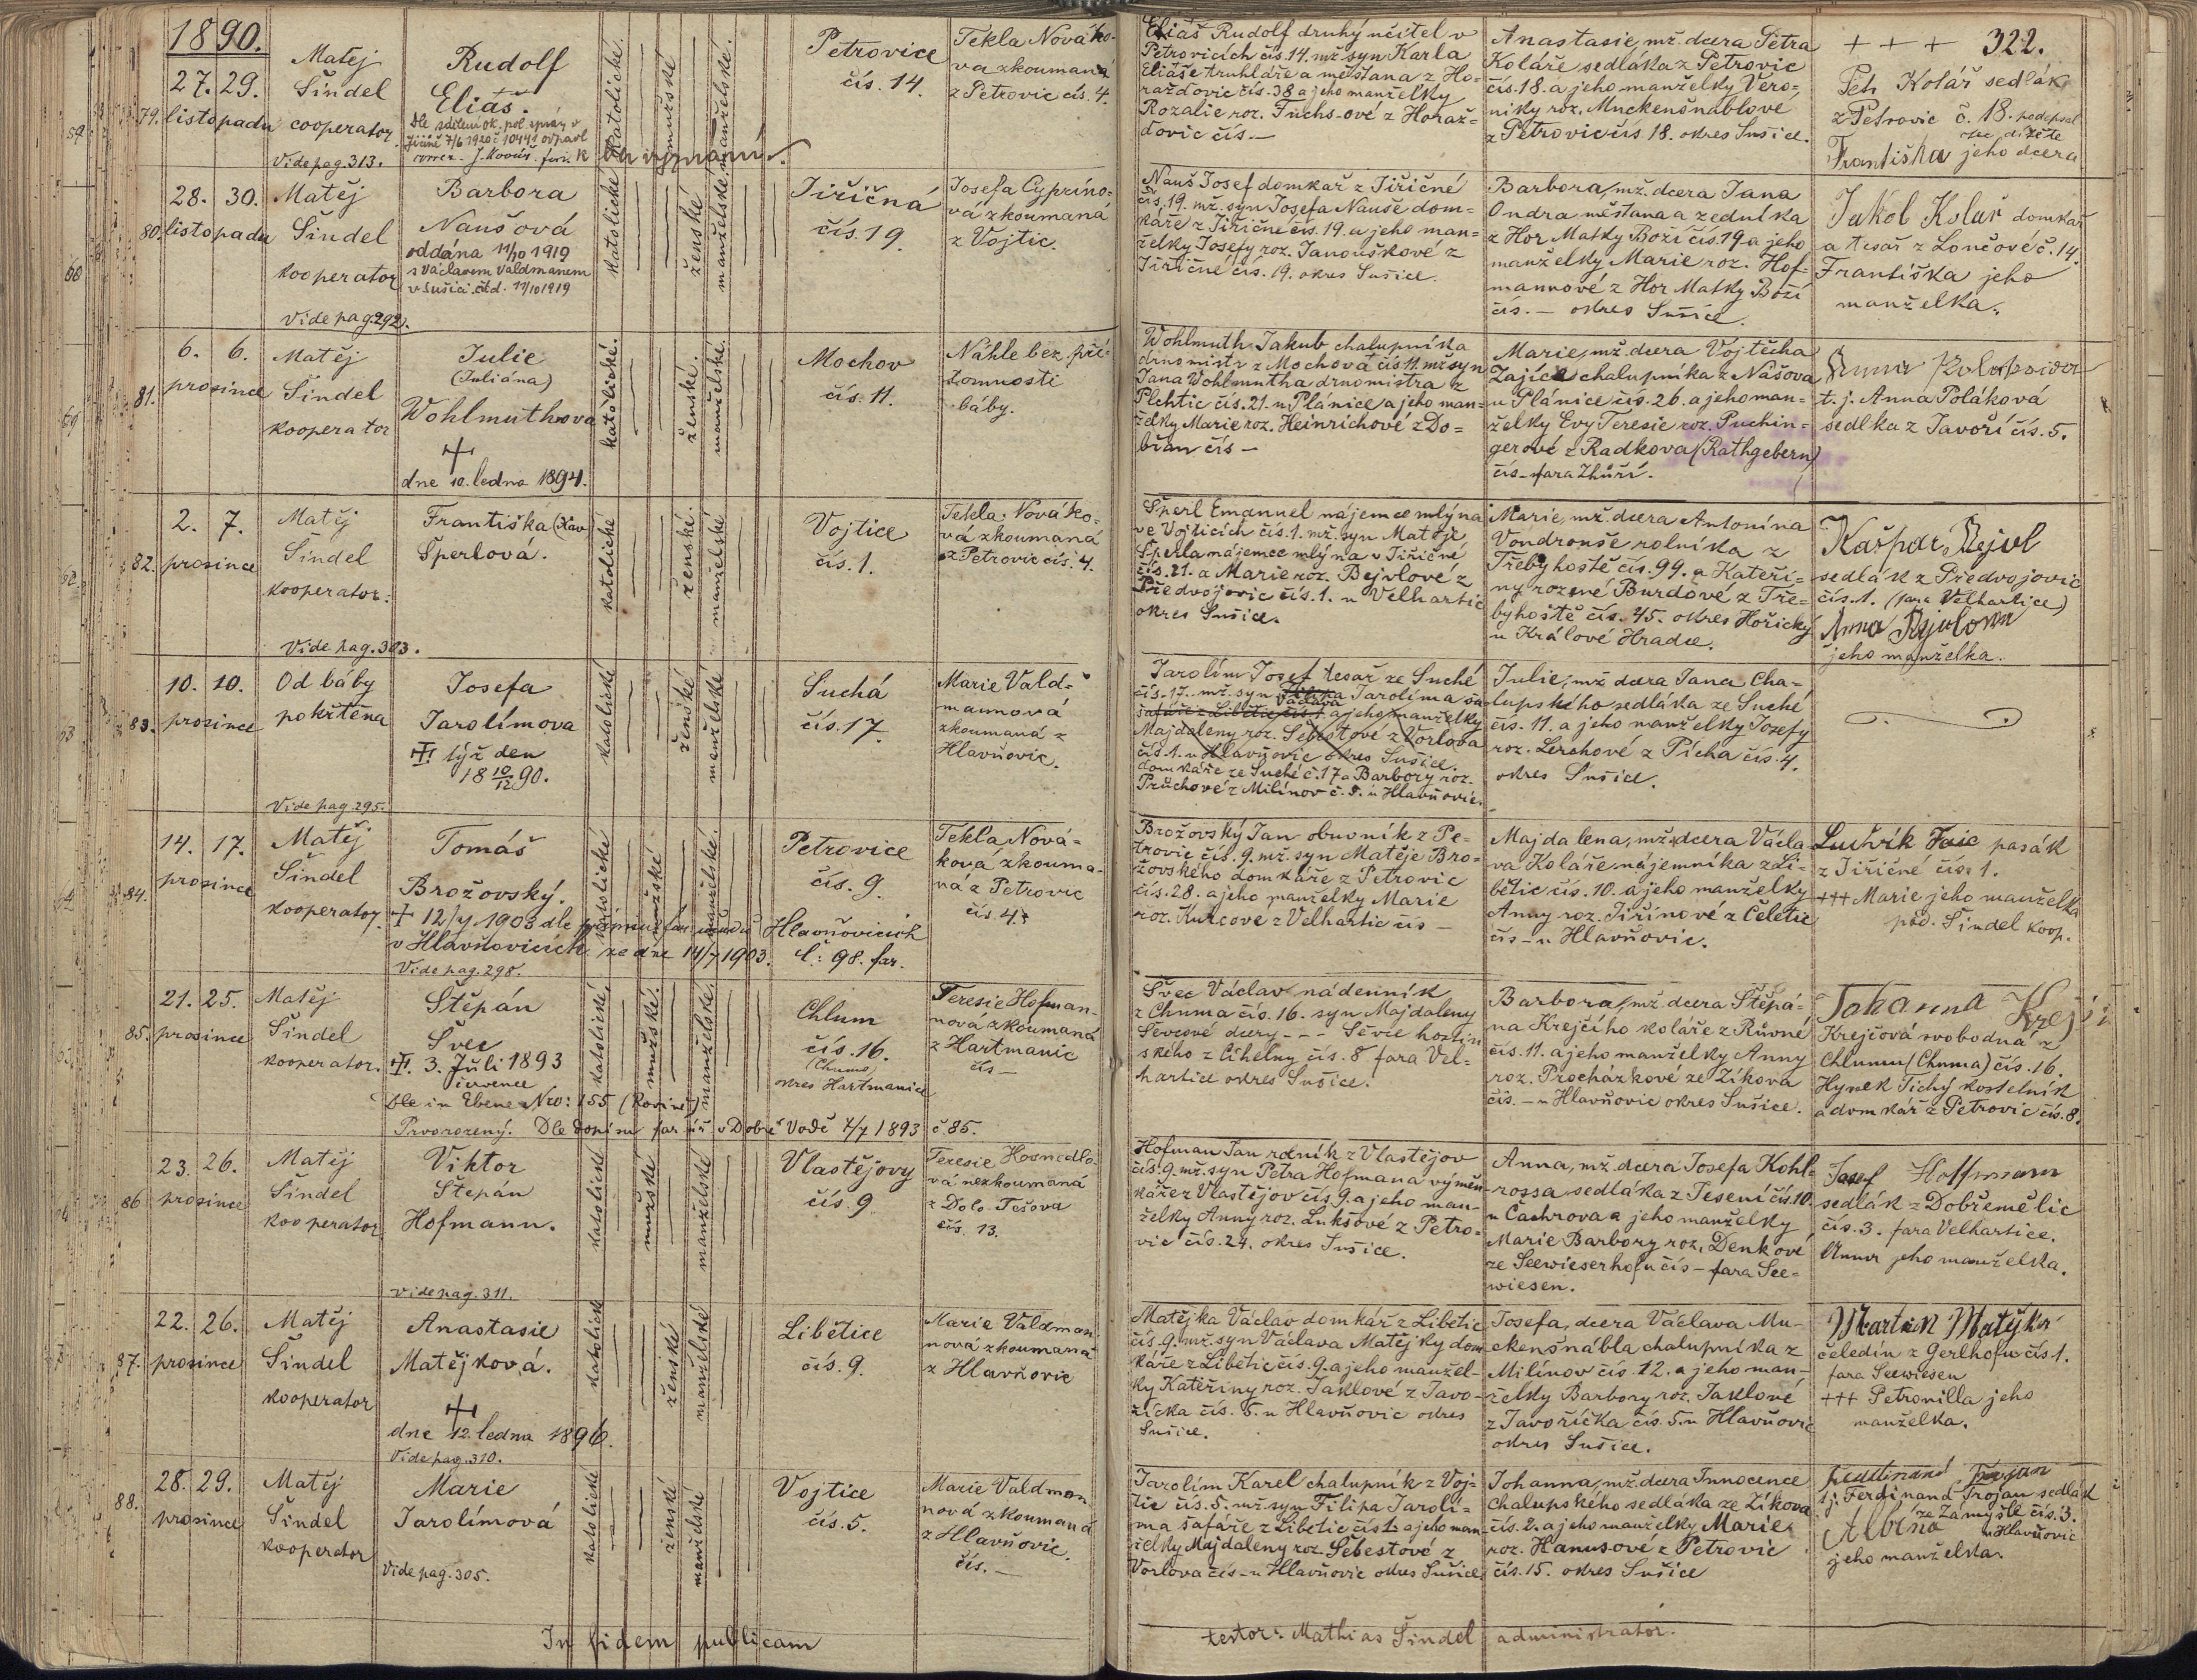 1890.
322.
79.
27. 29.
listopadu
Matěj
Šindel
cooperator
Vide pag. 313.
Rudolf
Eliáš.
bez vyznání.
katolické
mužské
manželské
Petrovice
čís. 14.
Tekla Nováko-
vá zkoumaná
z Petrovic čís. 4.
Eliáš Rudolf druhý učitel v
Petrovicích čís. 14. mž. syn Karla
Eliáše truhláře a měšťana z Ho-
ražďovic čís. 38 a jeho manželky
Rozalie roz. Fuchs-ové z Horaž-
ďovic čís. —
Anastasie, mž. dcera Petra
Koláře sedláka z Petrovic
čís. 18. a jeho manželky Vero-
niky roz. Muckenšnáblové
z Petrovic čís 18. okres Sušice.
+ + +
Petr Kolář sedlák
z Petrovic č. 18.
Františka jeho dcera
80.
28. 30.
listopadu
Matěj
Šindel
kooperator
Vide pag. 292.
Barbora
Naušová
oddána 11/10 1919
s Václavem Valdmanem
v Sušici. čtd. 11/10 1919
katolické
ženské
manželské
Jiřičná
čís. 19.
Josefa Cyprino-
vá zkoumaná
z Vojtic.
Nauš Josef domkář z Jiřičné
čís. 19. mž. syn Josefa Nauše dom-
káře z Jiřičné čís. 19. a jeho man-
želky Josefy roz. Janouškové z
Jiřičné čís. 19. okres Sušice.
Barbora, mž. dcera Jana
Ondra měšťana a zedníka
z Hor Matky Boží čís. 19 a jeho
manželky Marie roz. Hof-
mannové z Hor Matky Boží
čís. — okres Sušice.
Jakob Kolář domkář
a tesař z Lončové č. 14.
Františka jeho
manželka.
81.
6. 6.
prosince
Matěj
Šindel
kooperator
Julie
(Juliána)
Wohlmuthova
+
dne 10. ledna 1894.
katólické
ženské.
manželské
Mochov
čís. 11.
Náhle bez pří-
tomnosti
báby.
Wohlmuth Jakub chalupníka
drnomistr z Mochova čís. 11. mž. syn
Jana Wohlmutha drnomistra z
Plchtic čís. 21. u Plánice a jeho man-
želky Marie roz. Heinrichové z Do-
břan čís —
Marie, mž. dcera Vojtěcha
Zajíce chalupníka z Nášova
u Plánice čís. 26. a jeho man-
želky Evy Teresie roz. Puchin-
gerové z Radkova (Rathgebern)
čís — fara Zhůří.
t. j. Anna Poláková
sedlka z Javoří čís. 5.
82.
2. 7.
prosince
Matěj
Šindel
kooperator.
Vide pag. 303.
Františka (Xav)
Šperlová.
katolické
ženské.
manželské
Vojtice
čís. 1.
Tekla Nováko-
vá zkoumaná
z Petrovic čís. 4.
Šperl Emanuel nájemce mlýna
ve Vojticích čís. 1. mž. syn Matěje
Šperla nájemce mlýna v Jiřičné
čís. 21. a Marie roz. Bejvlové z
Předvojovic čís. 1. u Velhartic
okres Sušice.
Marie, mž. dcera Antonína
Vondrouše rolníka z
Třebyhoště čís. 99. a Kateři-
ny rozené Burdové z Tře-
byhoště čís. 45. okres Hořický
u Králové Hradce.
Kašpar Bejvl
sedlák z Předvojovic
čís. 1. (fara Velhartice)
jeho manželka.
83.
10. 10.
prosince
Od báby
pokřtěna
Vide pag. 295.
Josefa
Jarolímova
týž den
18 10/12 90.
katolické
ženské
manželské
Suchá
čís. 17.
Marie Vald-
mannová
zkoumaná z
Hlavňovic.
Jarolím Josef tesař ze Suché
čís. 17. mž. syn Václava Jarolíma
šafáře z Libětic čís. 1. a jeho manželky
Majdaleny roz. Šebestové z Vorlova
čís. 1. u Hlavňovic okres Sušice.
domkáře ze Suché č. 17 a Barbory roz.
Průchové z Milínov č. 5. u Hlavňovic.
Julie, mž. dcera Jana Cha-
lupského sedláka ze Suché
čís. 11. a jeho manželky Josefy
roz. Lerchové z Pícha čís. 4.
okres Sušice.
84.
14. 17.
prosince
Matěj
Šindel
kooperator.
Tomáš
Brožovský.
+ 12/7. 1903 dle Hlavňovicích
v Hlavňovicích ze dne 14/7 1903. č: 98. far.
Vide pag. 298.
katolické
mužské
manželské
Petrovice
čís. 9.
Tekla Nová-
ková zkouma-
ná z Petrovic
čís. 4.
Brožovský Jan obuvník z Pe-
trovic čís. 9. mž. syn Matěje Bro-
žovského domkáře z Petrovic
čís. 28. a jeho manželky Marie
roz. Kurcové z Velhartic čís —
Majdalena, mž. dcera Václa-
va Koláře nájemníka z Li-
bětic čís. 10. a jeho manželky
Anny roz. Jiřínové z Čeletic
čís — u Hlavňovic.
Ludvík Faic pasák
z Jiřičné čís. 1.
+++ Marie jeho manželka
pod. Šindel koop.
85.
21. 25.
prosince
Matěj
Šindel
kooperator.
Štěpán
Švec
3. Juli 1893
července
Dle in Ebene Nro: 155 (Rovině)
Prvorozený. Dle dopisu far. úř. v Dobré Vodě 7/7 1893 č. 85.
katolické
mužské.
manželské.
Chlum
čís. 16.
(Chuma)
okres Hartmanice
Teresie Hofman-
nová zkoumaná
z Hartmanic
čís —
Švec Václav nádenník
z Chuma čís. 16. syn Majdaleny
Ševcové dcery - - - Ševce hostin
ského z Cihelny čís. 8. fara Vel-
hartice okres Sušice.
Barbora, mž. dcera Štěpá-
na Krejčího koláře z Růvné
čís. 11. a jeho manželky Anny
roz. Procházkové ze Zíkova
čís. — u Hlavňovic okres Sušice.
Johanna Krejčí
Krejčová svobodná z
Chlumu (Chuma) čís. 16.
Hynek Tichý kostelník
a domkář z Petrovic čís. 8.
86
23. 26.
prosince
Matěj
Šindel
kooperator
Viktor
Štepán
Hofmann.
vide pag. 311.
katolické
mužské
manželské
Vlastějovy
čís. 9.
Teresie Hosnedlo-
vá nezkoumaná
z Dolo-Těšova
čís. 13.
Hofman Jan rolník z Vlastějov
čís. 9. mž. syn Petra Hofmana výměn-
káře z Vlastějov čís 9. a jeho man-
želky Anny roz. Lukšové z Petro-
vic čís. 24. okres Sušice.
Anna, mž. dcera Josefa Kohl-
rossa sedláka z Jesení čís. 10.
u Čachrova a jeho manželky
Marie Barbory roz. Denkové
ze Seewieserhofu čís — fara See-
wiesen.
Josef Hoffmann
sedlák z Dobřemělic
čís. 3. fara Velhartice.
Anna jeho manželka.
87.
22. 26.
prosince
Matěj
Šindel
kooperator
Anastasie
Matějková.
+
dne 12. ledna 1896.
Vide pag. 310.
katolické
ženské
manželské
Libětice
čís. 9.
Marie Valdman-
nová zkoumaná
z Hlavňovic
Matějka Václav domkář z Libětic
čís. 9. mž. syn Václava Matějky dom
káře z Libětic čís. 9. a jeho manžel-
ky Kateřiny roz. Jaklové z Javo-
říčka čís. 5. u Hlavňovic okres
Sušice.
Josefa, dcera Václava Mu-
ckenšnábla chalupníka z
Milínov čís. 12. a jeho man-
želky Barbory roz. Jaklové
z Javoříčka čís. 5. u Hlavňovic
okres Sušice.
Martin Matějka
čeledín z Gerlhofu čís 1.
fara Seewiesen
+++ Petronilla jeho
manželka.
88.
28. 29.
prosince
Matěj
Šindel
kooperator
Marie
Jarolímová
Vide pag. 305.
katolické
ženské
manželské
Vojtice
čís. 5.
Marie Valdman
nová zkoumaná
z Hlavňovic.
čís. —
Jarolím Karel chalupník z Voj-
tic čís. 5. mž. syn Filipa Jarolí-
ma šafáře z Libětic čís 1. a jeho man
želky Majdaleny roz. Šebestové z
Vorlova čís — u Hlavňovic okres Sušice.
Johanna, mž. dcera Innocence
Chalupského sedláka ze Zíkova
čís. 2. a jeho manželky Marie
roz. Hanusové z Petrovic
čís. 15. okres Sušice
Ferdinand Trojan
t. j. Ferdinand Trojan sedlák
ze Zámyšle čís. 3.
Albína u Hlavňovic
jeho manželka.
In fidem publicam
testor: Mathias Šindel administrator.